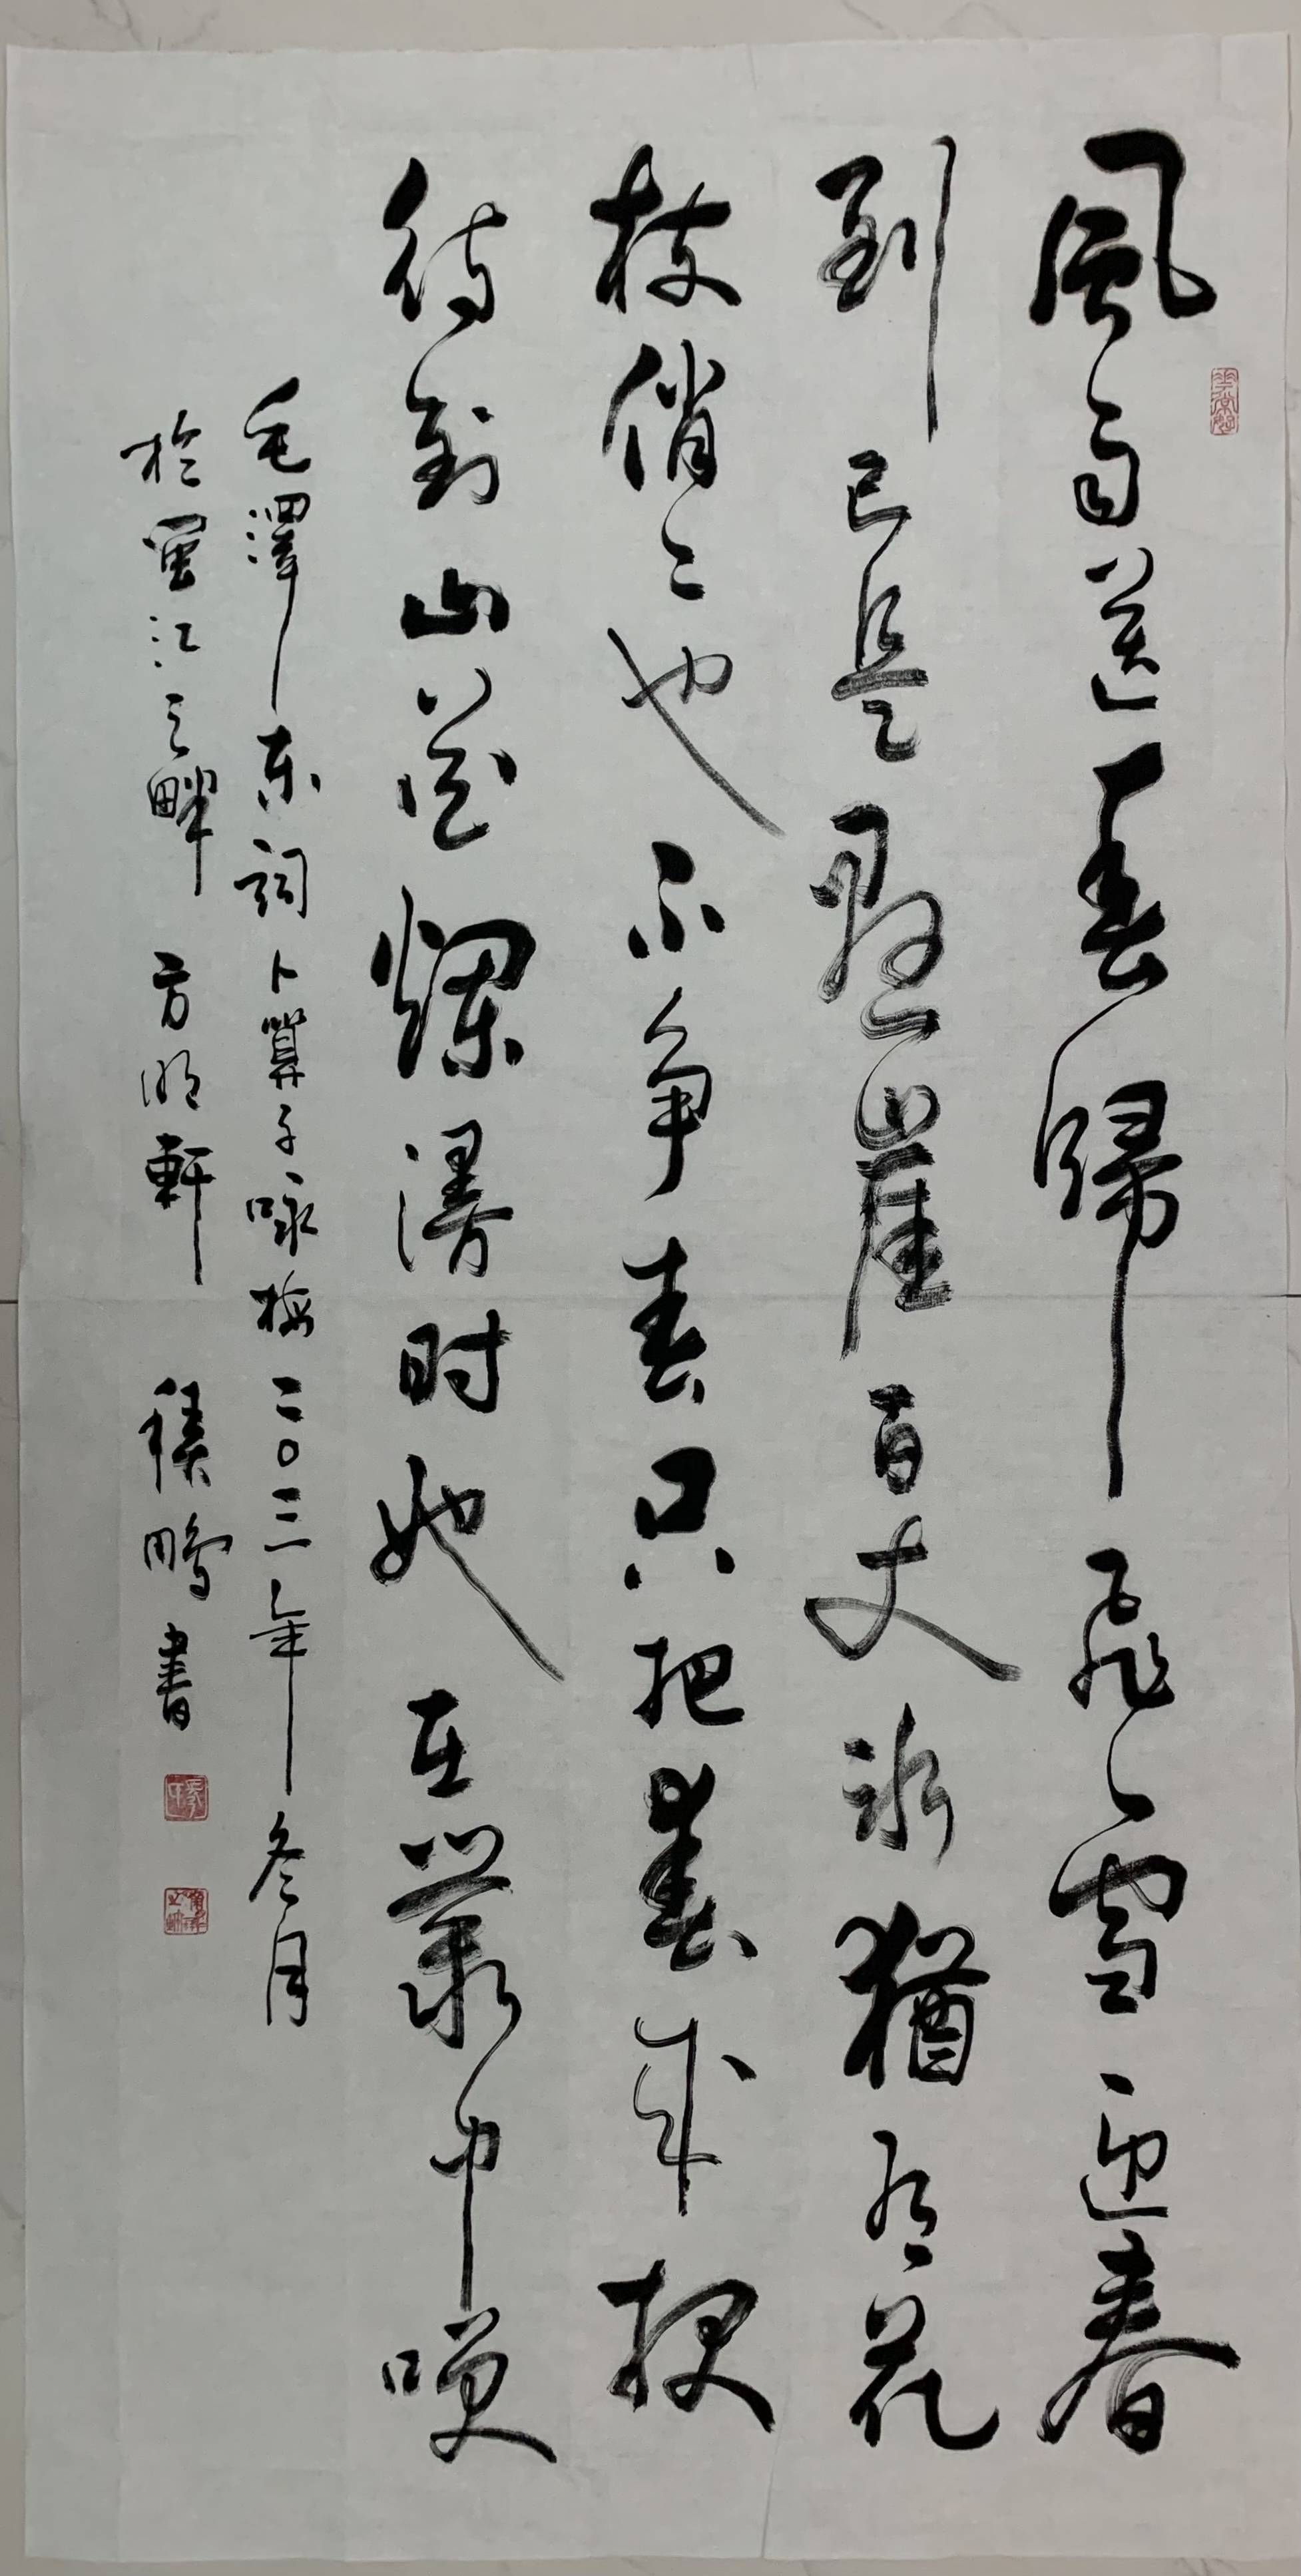 風雨送春歸飛雪迎春
到已是懸崖百丈冰猶有花
枝俏〻也不争春只把春来报
待到山花爛漫时她在叢中笑
毛澤东詞卜算子咏梅二〇三年冬月
於閩江之畔 方明軒 鵬書